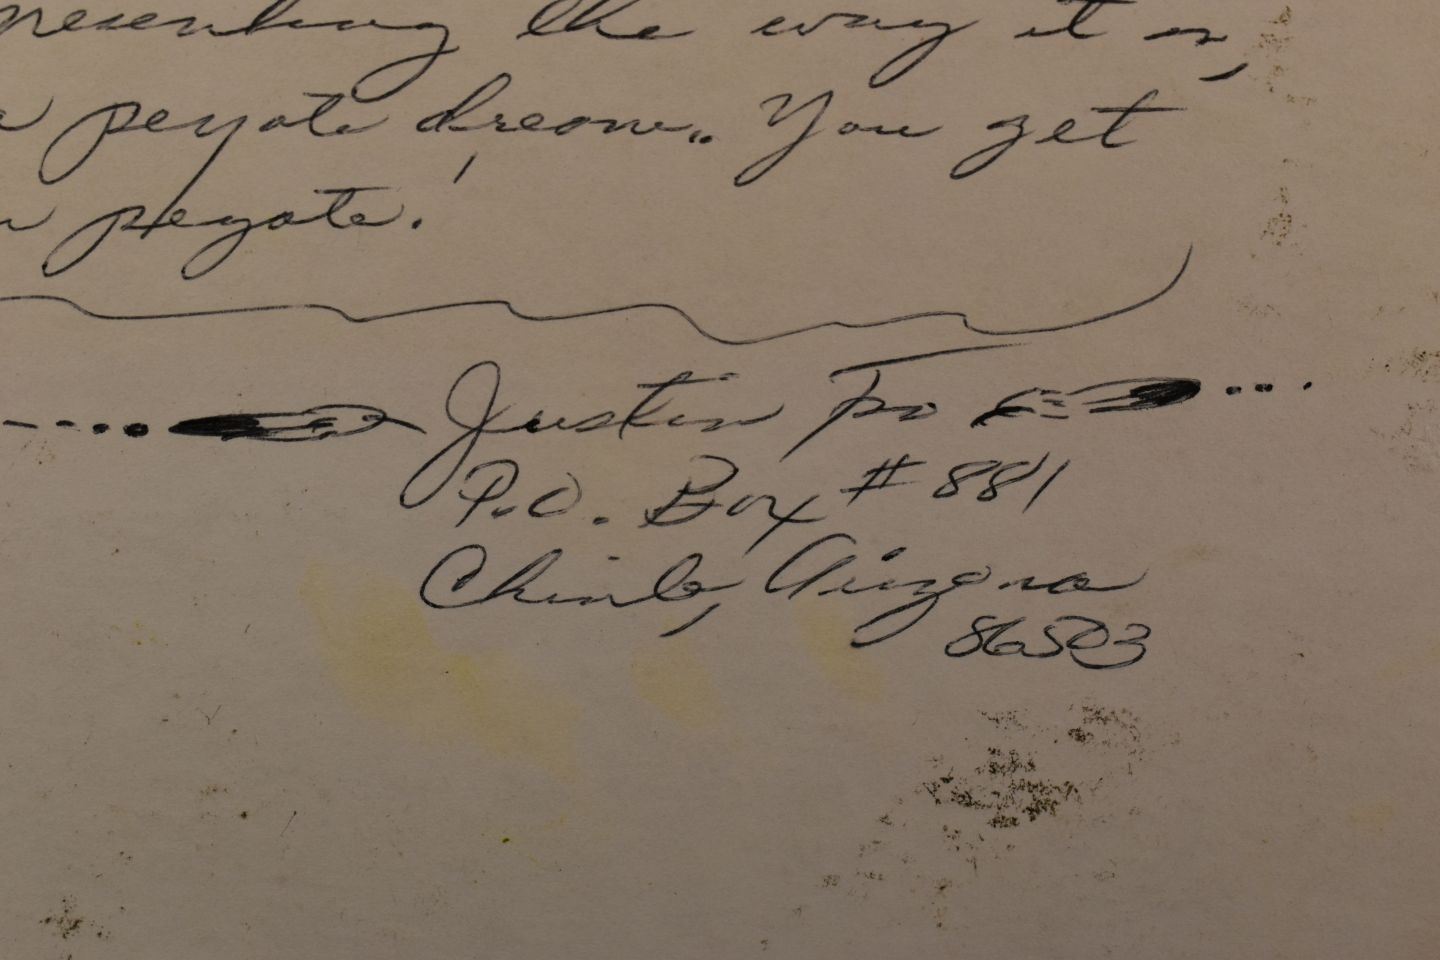 presenting the way it is,
a peyote dream.. You get
peyote.
Justin Tso
P.O. Box #881
Chinle, Arizona
86503